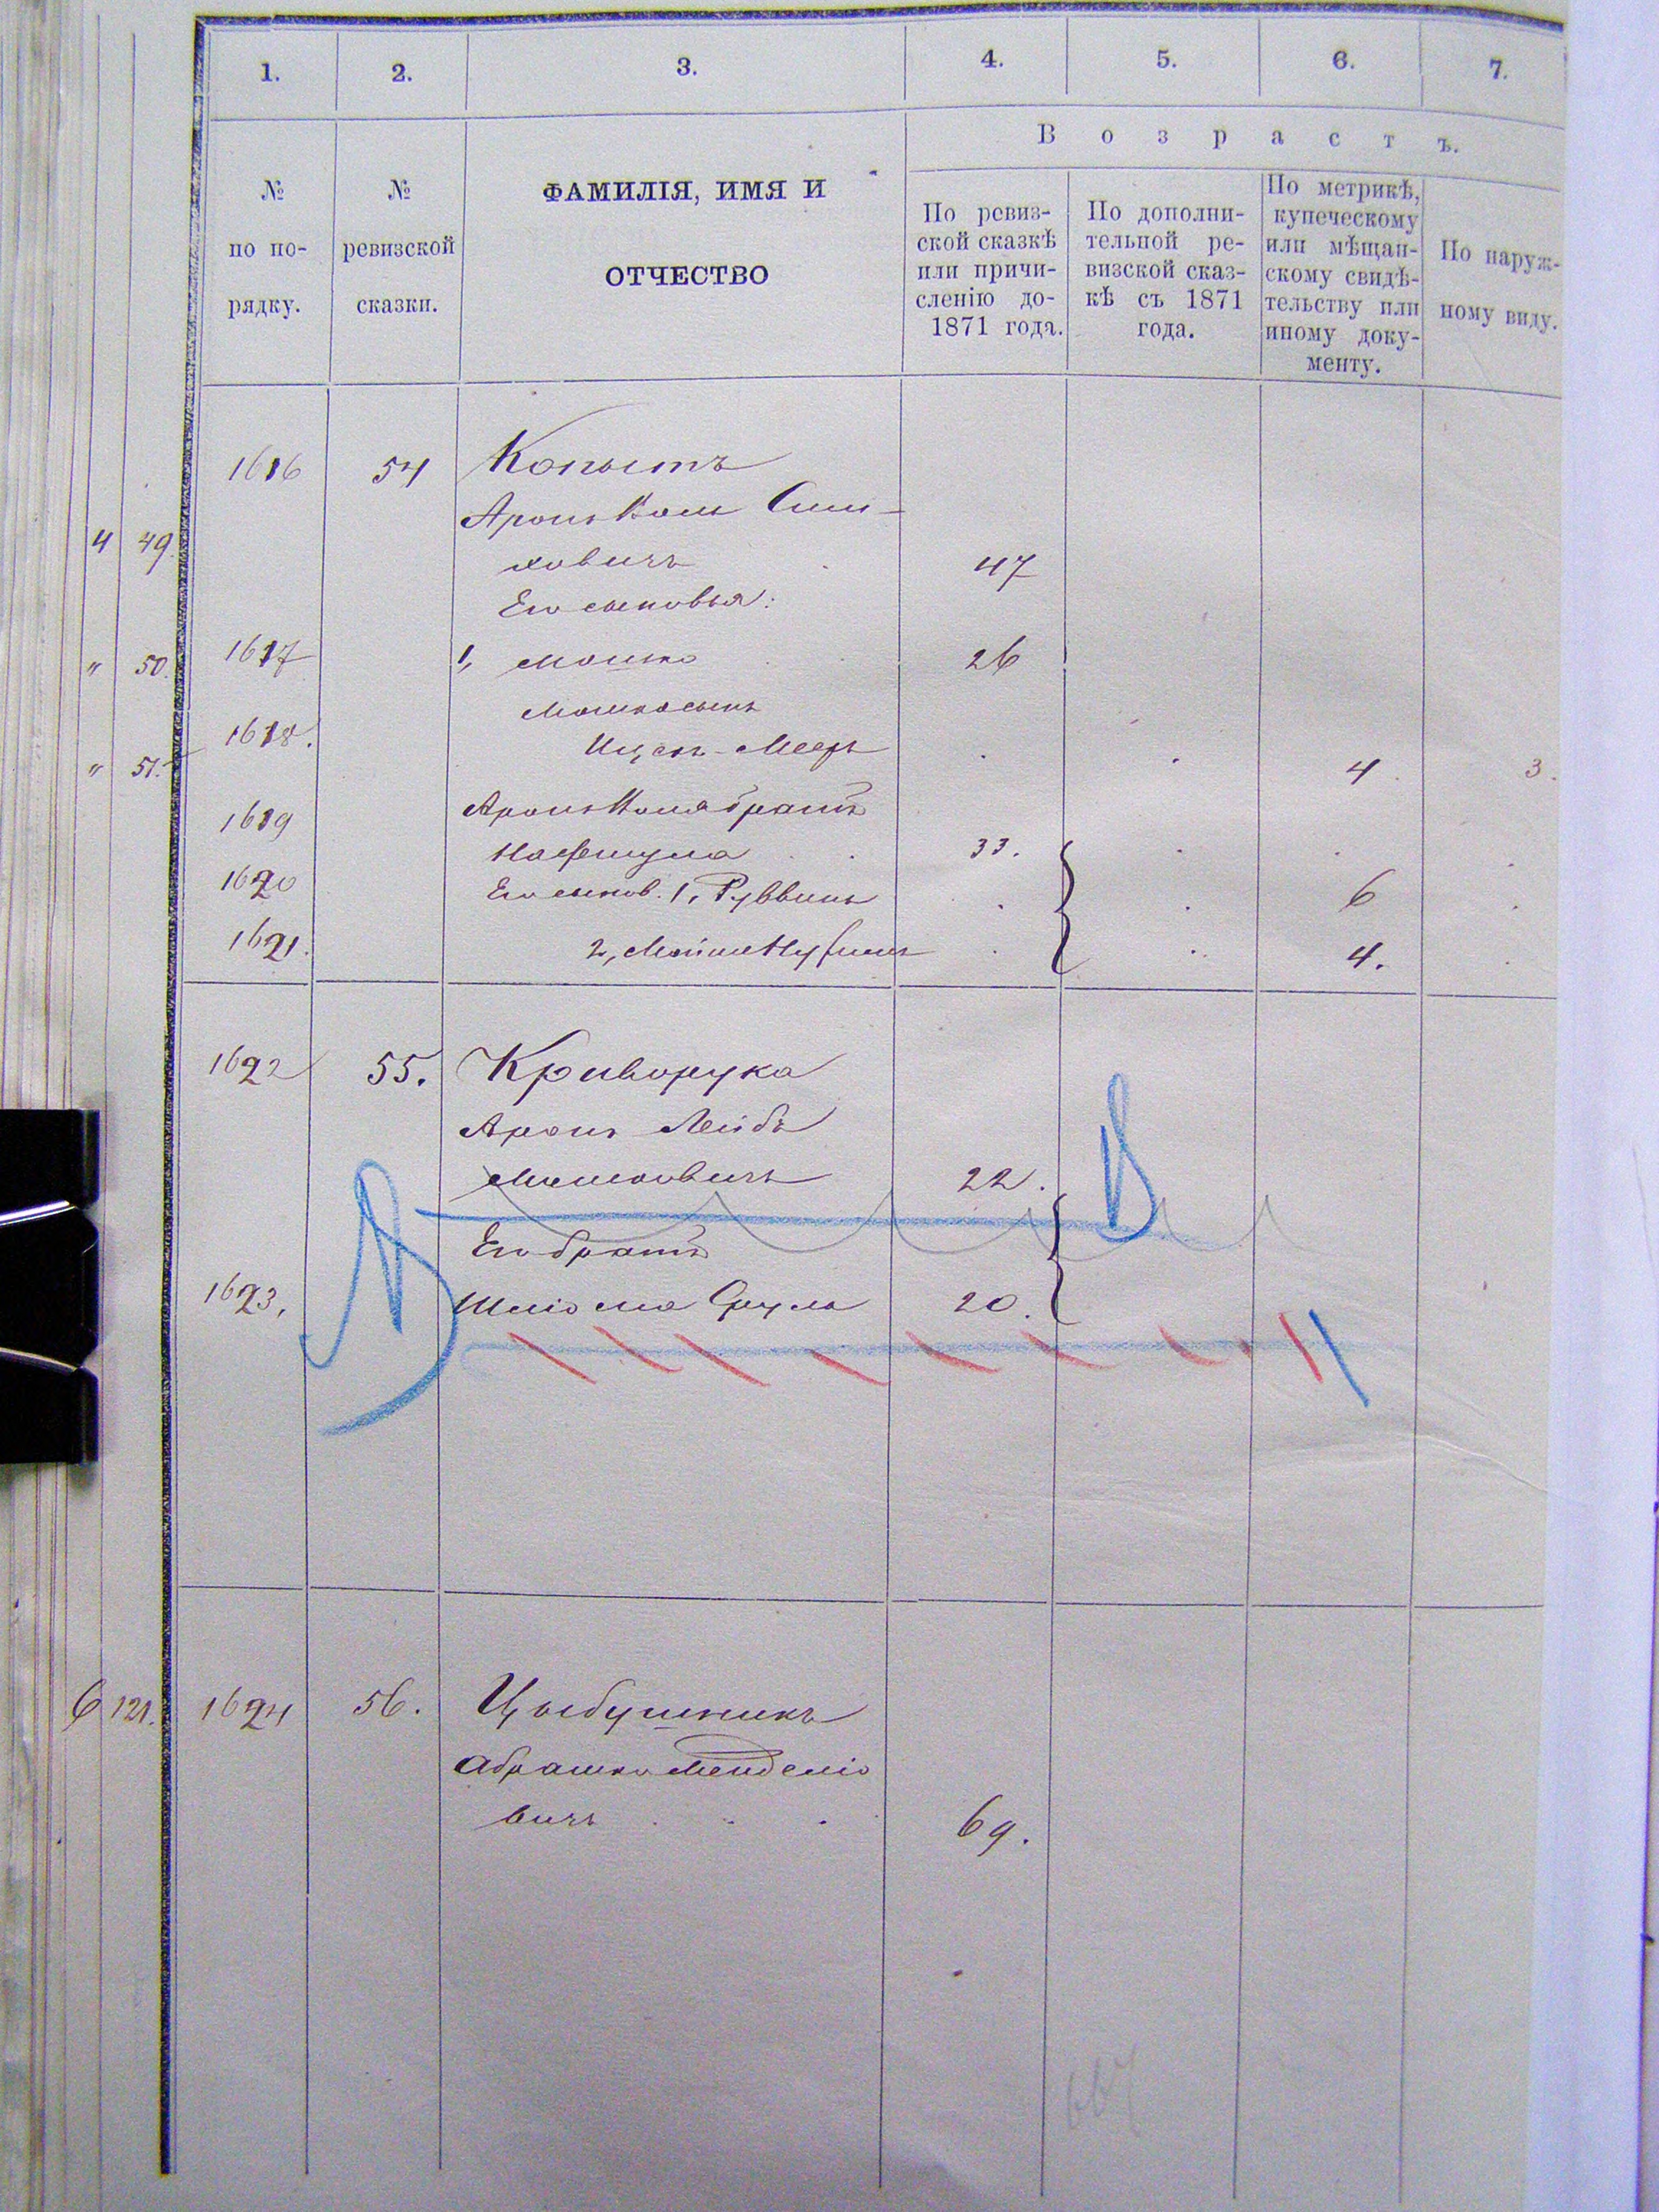 1. 2. 3. 4. 5. 6. 7.
В о з р а с т ъ.
№ по по-рядку.
№ ревизской сказки.
ФАМИЛІЯ, ИМЯ И
ОТЧЕСТВО
По ревиз-
ской сказкѣ
или причи-
сленію до-
1871 года.
По дополни-
тельной ре-
визской сказ-
кѣ съ 1871
года.
По метрикѣ,
купеческому
или мѣщан-
скому свидѣ-
тельству или
иному доку-
менту.
По наруж-
ному виду.
1616 54 Копытъ
Аронъ Сим-
4 49 ховичъ 47
Его сыновья:
" 50. 1617 1, Мошко 26
Мошка сынъ
" 51. 1618. Ицекъ-Мееръ 4 3.
1619 братъ
Нафтула 33.
1620 Его сынов. 1, Руввинъ 6
1621. 2, 4.
1622 55. Криворука
Аронъ Лейбъ
Мошковичъ 22.
Его братъ
1623, Шліома Сруль 20.
6 121. 1624 56. Цыбушникъ
Абрашко Менделіо
вичъ 69.